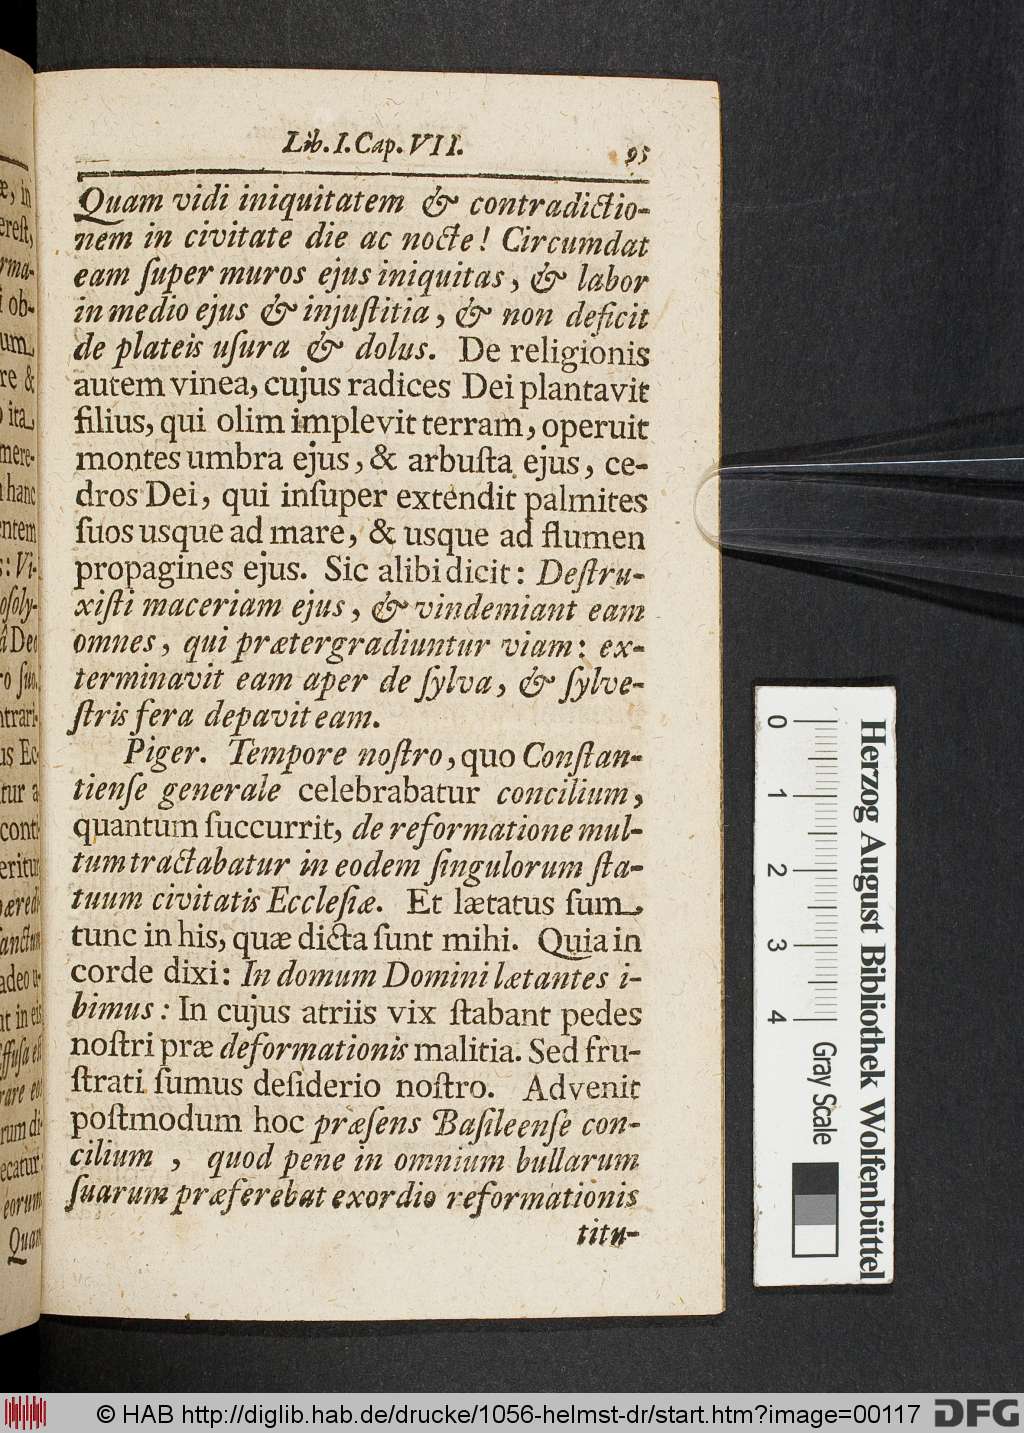 Lib. I. Cap. VII.
95
Quam vidi iniquitatem & contradictio-
nem in civitate die ac nocte! Circumdat
eam ſuper muros ejus iniquitas, & labor
in medio ejus & injuſtitia, & non deficit
de plateis uſura & dolus. De religionis
autem vinea, cujus radices Dei plantavit
filius, qui olim implevit terram, operuit
montes umbra ejus, & arbuſta ejus, ce-
dros Dei, qui inſuper extendit palmites
ſuos usque ad mare, & usque ad flumen
propagines ejus. Sic alibi dicit: Deſtru-
xiſti maceriam ejus, & vindemiant eam
omnes, qui prætergradiuntur viam: ex-
terminavit eam aper de ſylva, & ſylve-
ſtris fera depavit eam.
Piger. Tempore noſtro, quo Conſtan-
tienſe generale celebrabatur concilium,
quantum ſuccurrit, de reformatione mul-
tum tractabatur in eodem ſingulorum ſta-
tuum civitatis Eccleſiæ. Et lætatus ſum
tunc in his, quæ dicta ſunt mihi. Quia in
corde dixi: In domum Domini lætantes i-
bimus: In cujus atriis vix ſtabant pedes
noſtri præ deformationis malitia. Sed fru-
ſtrati ſumus deſiderio noſtro. Advenit
poſtmodum hoc præſens Baſileenſe con-
cilium, quod pene in omnium bullarum
ſuarum præferebat exordio reformationis
titu-
æ, in
ereſt,
rma-
i ob-
um
re &
ita
mere-
hanc
entem
: Vi-
oſoly-
Deo
ro ſuo.
ntrari-
us Ec-
tur a
cont
eritur
hæred
ſanctum
adeo u-
in eis
effuſa eſt
rare eos
rum di-
ecatur:
eorum
Quam
0 1 2 3 4
Herzog August Bibliothek Wolfenbüttel
Gray Scale
© HAB http://diglib.hab.de/drucke/1056-helmst-dr/start.htm?image=00117
DFG